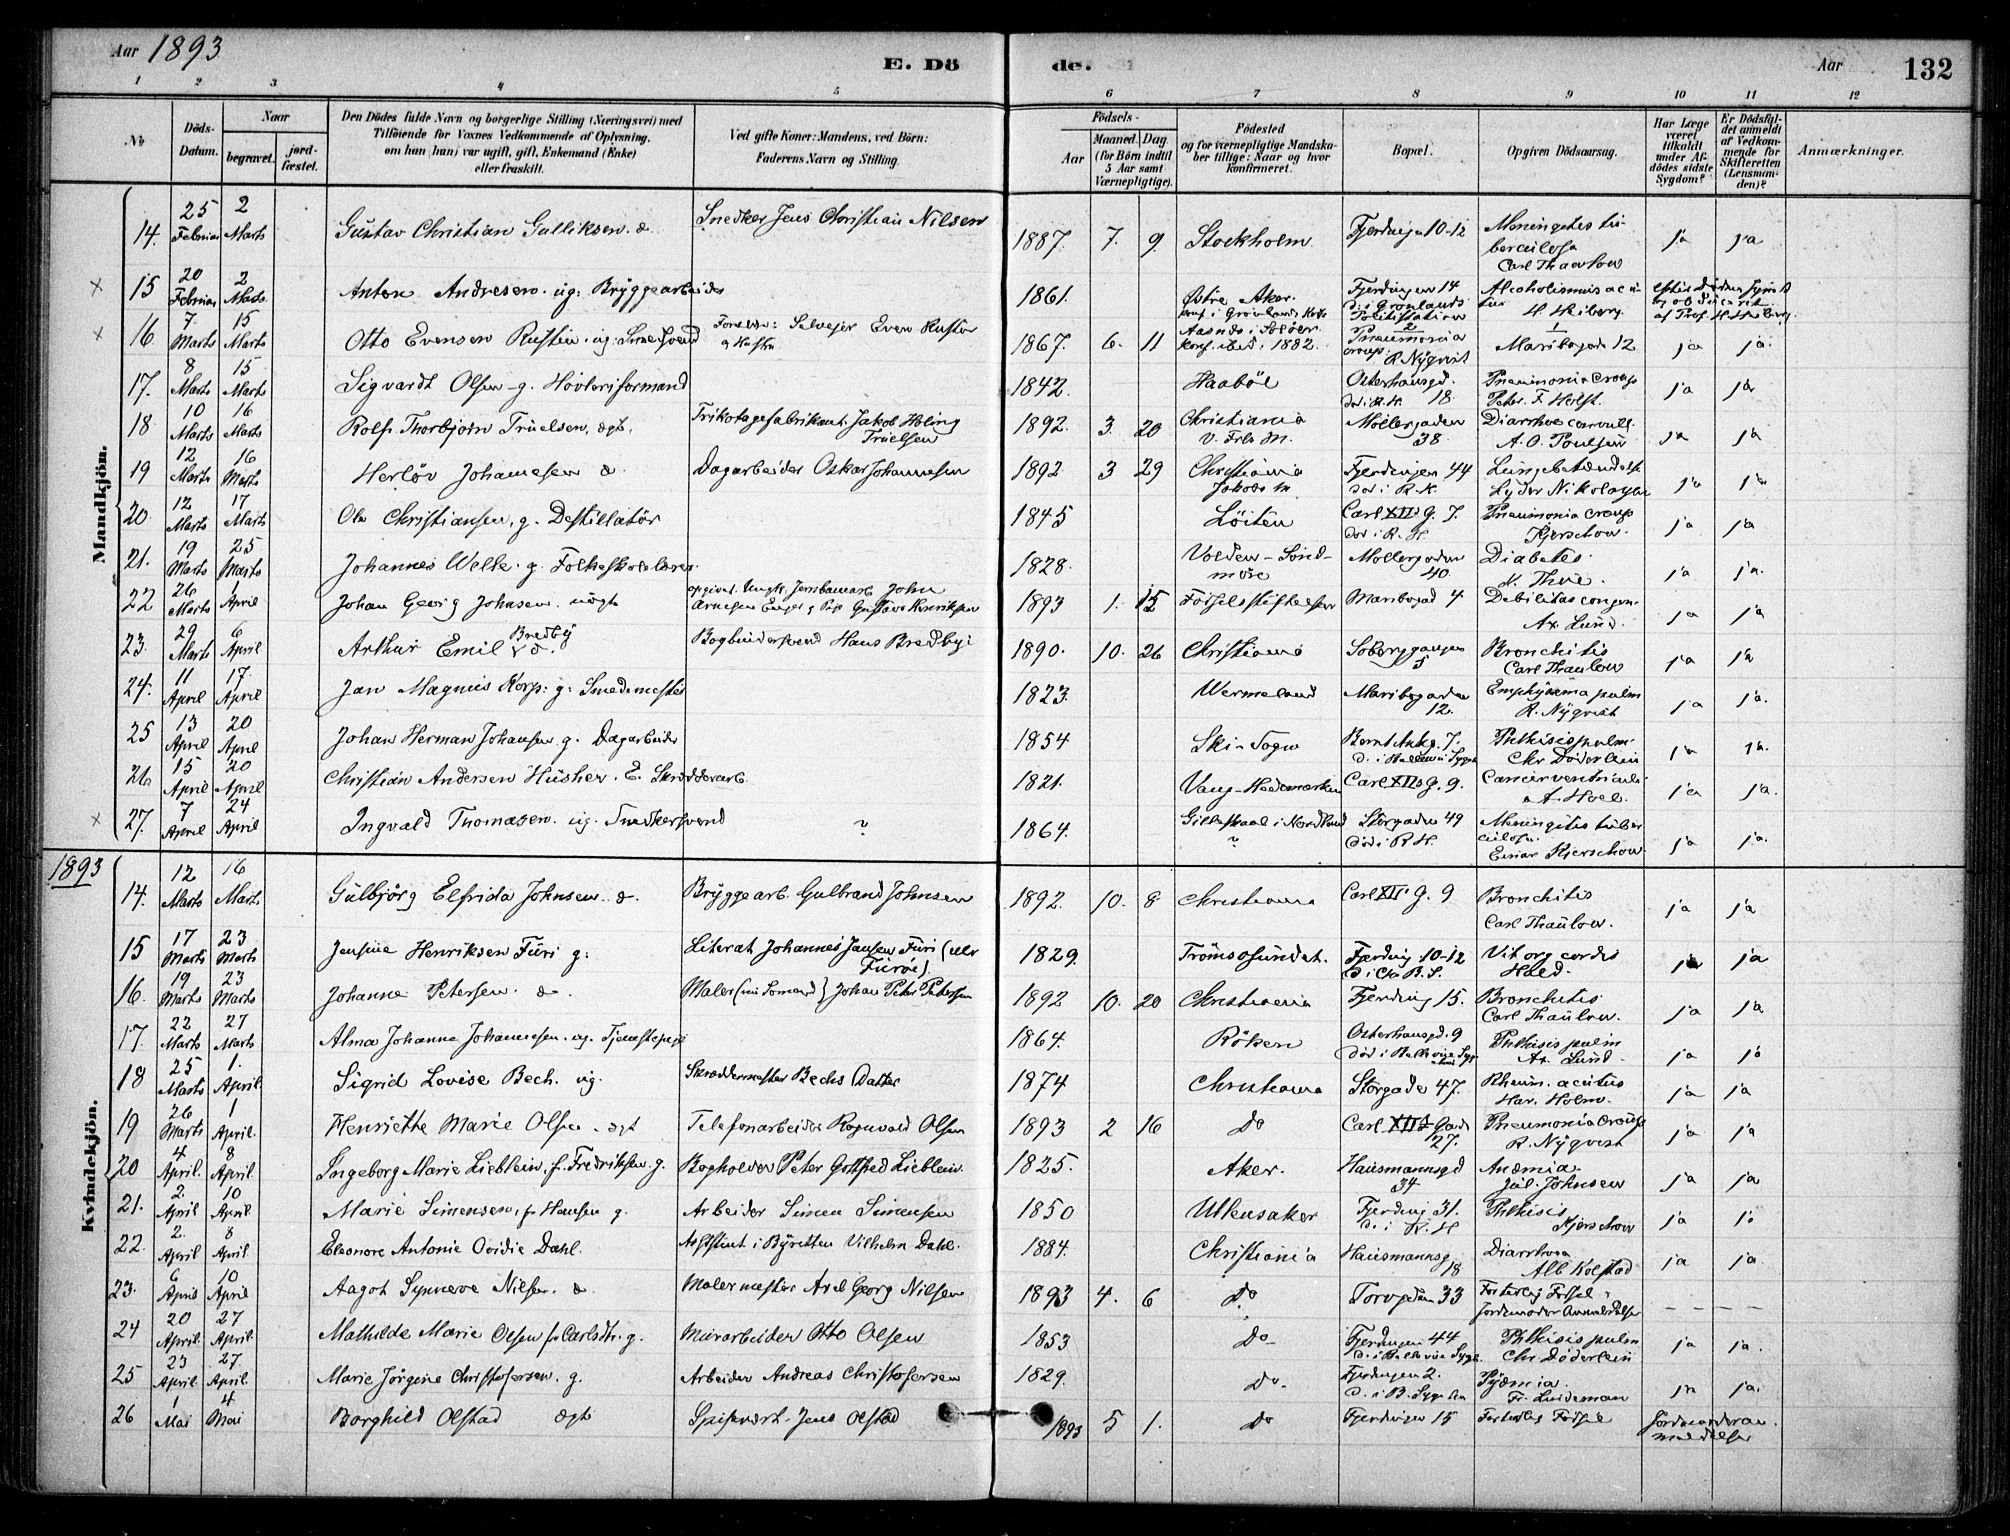 Aar 1893
E. Dö de.
Aar
132
1 2 3 4 5 6 7 8 9 10 11 12
No
Döds-Datum.
Naar
begravet.
jord-fæstet.
Den Dödes fulde Navn og borgerlige Stilling (Næringsvei) med
Tilföiende for Voxnes Vedkommende af Oplysning,
om han (hun) var ugift, gift, Enkemand (Enke)
eller fraskilt.
Ved gifte Koner: Mandens, ved Börn:
Faderens Navn og Stilling.
Födsels-
Aar
Maaned. Dag.
(for Börn indtil
5 Aar samt
Værnepligtige).
Födested
og for værnepligtige Mandska-
ber tillige: Naar og hvor
konfirmeret.
Bopæl.
Opgiven Dödsaarsag.
Har Læge
været
tilkaldt
under Af-
dödes sidste
Sygdom?
Er Dödsfal-
det anmeldt
af Vedkom-
mende for
Skifteretten
(Lensman-
den)?
Anmærkninger.
Mandkjön.
14. 25 Februar 2 Marts Gustav Christian Gulliksen d. Snedker Jens Christian Nilsen 1887. 7. 9. Stockholm Fjerdingen 10-12 Meningites tuberculosa Carl Thaulow ja ja
× 15 20 Februar 2 Marts Anton Andresen. ug. Bryggearbeider 1861. Østre Aker. Fjerdingen 14 d. i Grønlands Politistation Alcoholismus acutus H. Heiberg
× 16. 7 Marts 15 Marts Otto Evensen Rusten. ug. Smedsvend Forældre: Selveier Even Rusten og Hustru 1867. 6. 11 Aasnæs i Soløer. konf. ibid. 1882. 2 Pneumonia croup. R. Nyqvist 1 Maribogade 12 ja ja.
17. 8 Marts 15 Marts Sigvardt Olsen g. Høvleriformand 1842. Haabøl Osterhausgd. 18. død i R.H. Pneumonia croup Peter F. Holst. ja ja
18 10 Marts 16 Marts Rolf Thorbjørn Truelsen, ægt. Trikotagefabrikant Jakob Holing Truelsen 1892. 3. 20 Christiania V. Frls M. Møllergaden 38. Diarrhoe A. O. Poulsen ja ja
19 12 Marts 16 Marts Herløv Johannesen d. Dagarbeider Oskar Johannesen 1892 3 29 Christiania Jakobs M Fjerdingen 44 død i R.H. Lungebetændelse Lyder Nikolaysen ja ja
20. 12 Marts 17 Marts Ole Christiansen, g. Destillatør 1845 Løiten Carl XII's G. 7. død i R.H Pneumonia croup Kjerschow. ja ja
21. 19 Marts 25 Marts Johannes Welle. g. Folkeskolelærer. 1828. Volden - Søndmøre Møllergaden 40. Diabetes. N. Thue. ja ja.
22 26 Marts 1 April Johan Georg Johnsen. uægt opgivet. Ungk. Jernbanearb John Arnesen Engel g Pige Gustava Henriksen 1893 1. 15 Fødselsstiftelsen Maribogad 4 Debilitas congen. Ax. Lund. ja ja
23. 29 Marts 6 April Arthur Emil Bredby d. Bogbindersvend Hans Bredbye 1890. 10. 26 Christiania 5 Bronchitis Carl Thaulow ja ja
24. 11 April 17. April Jan Magnus Korp. g. Smedemester 1823. Wermeland Maribogaden 12. Emphysema pulm R. Nyqvist ja ja.
25 13 April 20 April Johan Herman Johansen. g. Dagarbeider 1854 Ski Sogn Bernt Ankg. 7. Phthisis pulm. Chr Döderlein ja ja.
26. 15 April 20 April Christian Andersen Husher. E. Skrædderarb. 1821. Vang - Hedemarken Carl XII's G. 9. Cancer ventriculi A. Hoel. ja ja.
× 27. 7 April 24 April Ingvald Thomasen. ug. Snedkersvend ? 1864. Gilleskaal i Nordland ? Storgaden 49 død i R.H. Meningitis tuberculosa. Einar Kjerschow. ja ja.
1893
Kvindekjön.
14. 12 Marts 16 Marts Gulbjörg Elfrida Johnsen. d. Bryggearb. Gulbrand Johnsen 1892. 10. 8 Christiania Carl XII's G. 9 Bronchitis Carl Thaulow. ja ja
15 17 Marts 23 Marts Jensine Henriksen Furi g. Literat Johannes Jansen Furi (eller Furøe) 1829. Tromsøsundet. Fjerding 10-12 Vit org cordis Hald. ja ja
16. 19 Marts 23 Marts Johanne Petersen. d. Maler (nu Sömand) Johan Peter Petersen 1892 10. 20 Christiania Fjerding 15. Bronchitis Carl Thaulow. ja ja
17. 22 Marts 27 Marts Alma Johanne Johannesen. ug. Tjenestepige 1864. Röken Osterhausgd. 9 Phthisis pulm Ax. Lund. ja ja
18 25 Marts 1. April Sigrid Lovise Bech. ug. Skræddermester Bechs Datter 1874 Christiania Storgade 47. Rheum. acutus Har. Holm. ja ja
19 26 Marts 1 April. Henriette Marie Olsen. ægt Telefonarbeider Ragnvald Olsen 1893 2 16 Do Carl XII's Gade 27. Pneumonia croup R. Nyqvist ja ja
20 4 April. 8 April. Ingeborg Marie Lieblein, f. Fredriksen. g. Bogholder Peter Gottfred Lieblein. 1825. Aker. Hausmannsgd 34 Anæmia. Jul. Johnsen ja ja
21. 2. April 10 April Marie Simensen, f. Hansen g. Arbeider Simen Simensen 1850 Ullensaker Fjerding 31. d. i R.H Phthisis Kjerschow ja ja
22. 2. April 8 April Eleonore Antonie Ovidie Dahl. Assistent i Byretten Vilhelm Dahl. 1884. Christiania Hausmannsg. 18 Diarrhoea Alb Kolstad ja ja.
23. 6 April 10 April Aagot Synneve Nilsen. d. Malermester Axel Georg Nilsen 1893 4. 6 Do Torvgaden 33 Fortidlig Födsel. Jordemoder Anmeldelse - - - -
24 20 April. 27 April. Mathilde Marie Olsen f. Carlsdtr. g. Murarbeider Otto Olsen 1853 Do - Fjerdingen 44 Phthisis pulm Chr Döderlein ja ja.
25 23 April. 27. April. Marie Jörgine Christofersen. g. Arbeider Andreas Christofersen 1829. Do. Fjerdingen 2. Pyæmia. Fr. Lindeman ja ja.
26 1 Mai 4 Mai Borghild Olstad ægte Spisevært Jens Olstad 1893 5 1. Do Fjerdingen 15 Fortidlig Födsel Jordemoderanmeldelse